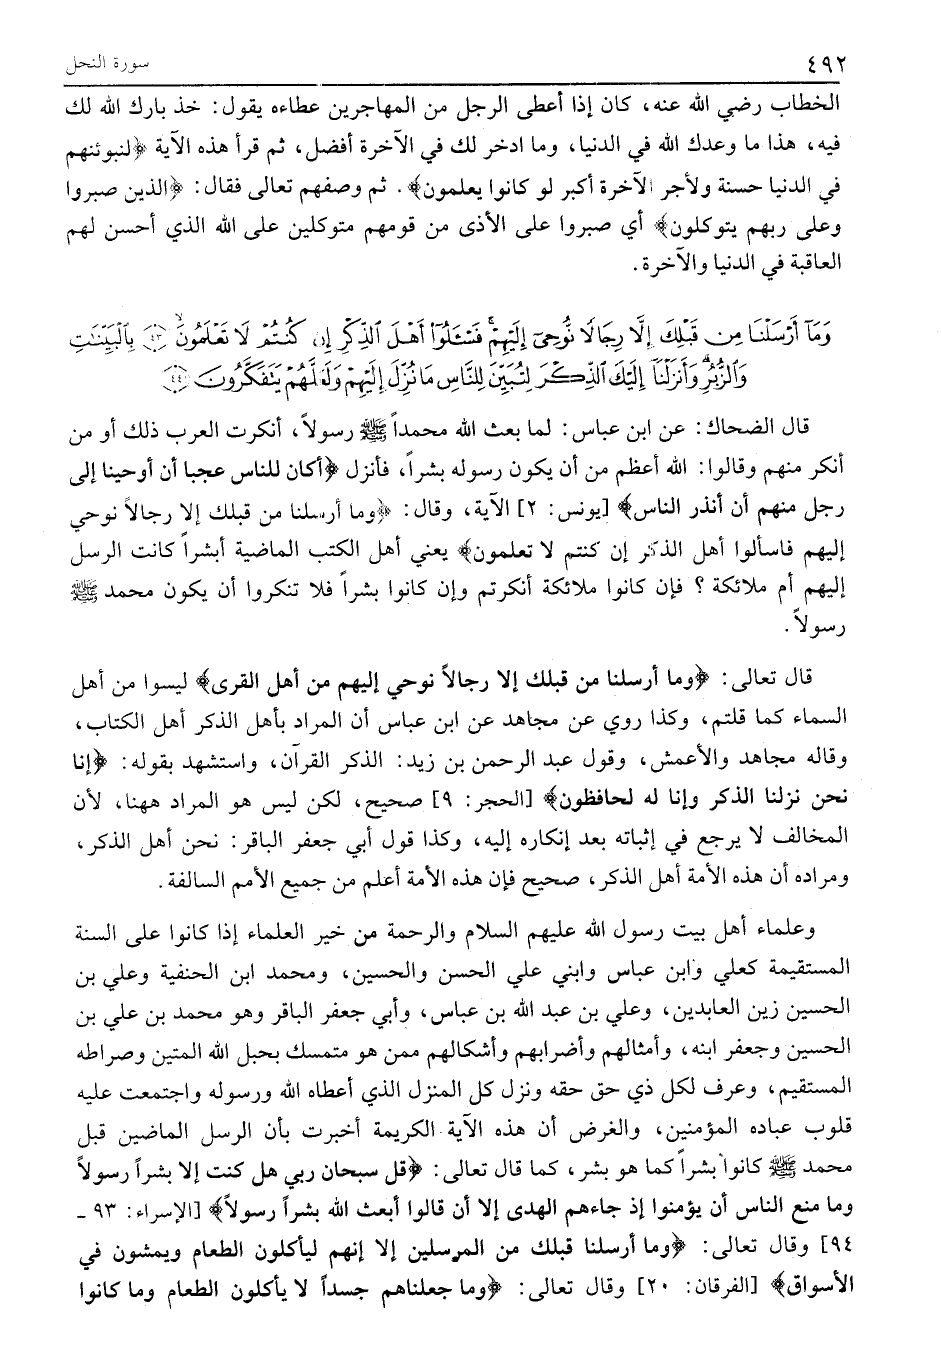 ٤٩٢
سورة النحل
الخطاب رضي الله عنه، كان إذا أعطى الرجل من المهاجرين عطاءه يقول: خذ بارك الله لك
فيه، هذا ما وعدك الله في الدنيا، وما ادخر لك في الآخرة أفضل، ثم قرأ هذه الآية ﴿لنبوئنهم
في الدنيا حسنة ولأجر الآخرة أكبر لو كانوا يعلمون﴾. ثم وصفهم تعالى فقال: ﴿الذين صبروا
وعلى ربهم يتوكلون﴾ أي صبروا على الأذى من قومهم متوكلين على الله الذي أحسن لهم
العاقبة في الدنيا والآخرة.
وَمَآ أَرْسَلْنَا مِن قَبْلِكَ إِلَّا رِجَالًا نُّوحِىٓ إِلَيْهِمْ ۚ فَسْـَٔلُوٓا۟ أَهْلَ ٱلذِّكْرِ إِن كُنتُمْ لَا تَعْلَمُونَ ۙ ٤٣ بِٱلْبَيِّنَـٰتِ
وَٱلزُّبُرِ ۗ وَأَنزَلْنَآ إِلَيْكَ ٱلذِّكْرَ لِتُبَيِّنَ لِلنَّاسِ مَا نُزِّلَ إِلَيْهِمْ وَلَعَلَّهُمْ يَتَفَكَّرُونَ ٤٤
قال الضحاك: عن ابن عباس: لما بعث الله محمداً ﷺ رسولاً، أنكرت العرب ذلك أو من
أنكر منهم وقالوا: الله أعظم من أن يكون رسوله بشراً، فأنزل ﴿أكان للناس عجبا أن أوحينا إلى
رجل منهم أن أنذر الناس﴾ [يونس: ٢] الآية، وقال: ﴿وما أرسلنا من قبلك إلا رجالاً نوحي
إليهم فاسألوا أهل الذكر إن كنتم لا تعلمون﴾ يعني أهل الكتب الماضية أبشراً كانت الرسل
إليهم أم ملائكة؟ فإن كانوا ملائكة أنكرتم وإن كانوا بشراً فلا تنكروا أن يكون محمد ﷺ
رسولاً.
قال تعالى: ﴿وما أرسلنا من قبلك إلا رجالاً نوحي إليهم من أهل القرى﴾ ليسوا من أهل
السماء كما قلتم، وكذا روي عن مجاهد عن ابن عباس أن المراد بأهل الذكر أهل الكتاب،
وقاله مجاهد والأعمش، وقول عبد الرحمن بن زيد: الذكر القرآن، واستشهد بقوله: ﴿إنا
نحن نزلنا الذكر وإنا له لحافظون﴾ [الحجر: ٩] صحيح، لكن ليس هو المراد ههنا، لأن
المخالف لا يرجع في إثباته بعد إنكاره إليه، وكذا قول أبي جعفر الباقر: نحن أهل الذكر،
ومراده أن هذه الأمة أهل الذكر، صحيح فإن هذه الأمة أعلم من جميع الأمم السالفة.
وعلماء أهل بيت رسول الله عليهم السلام والرحمة من خير العلماء إذا كانوا على السنة
المستقيمة كعلي وابن عباس وابني علي الحسن والحسين، ومحمد ابن الحنفية وعلي بن
الحسين زين العابدين، وعلي بن عبد الله بن عباس، وأبي جعفر الباقر وهو محمد بن علي بن
الحسين وجعفر ابنه، وأمثالهم وأضرابهم وأشكالهم ممن هو متمسك بحبل الله المتين وصراطه
المستقيم، وعرف لكل ذي حق حقه ونزل كل المنزل الذي أعطاه الله ورسوله واجتمعت عليه
قلوب عباده المؤمنين، والغرض أن هذه الآية الكريمة أخبرت بأن الرسل الماضين قبل
محمد ﷺ كانوا بشراً كما هو بشر، كما قال تعالى: ﴿قل سبحان ربي هل كنت إلا بشراً رسولاً
وما منع الناس أن يؤمنوا إذ جاءهم الهدى إلا أن قالوا أبعث الله بشراً رسولاً﴾ [الإسراء: ٩٣ ـ
٩٤] وقال تعالى: ﴿وما أرسلنا قبلك من المرسلين إلا إنهم ليأكلون الطعام ويمشون في
الأسواق﴾ [الفرقان: ٢٠] وقال تعالى: ﴿وما جعلناهم جسداً لا يأكلون الطعام وما كانوا